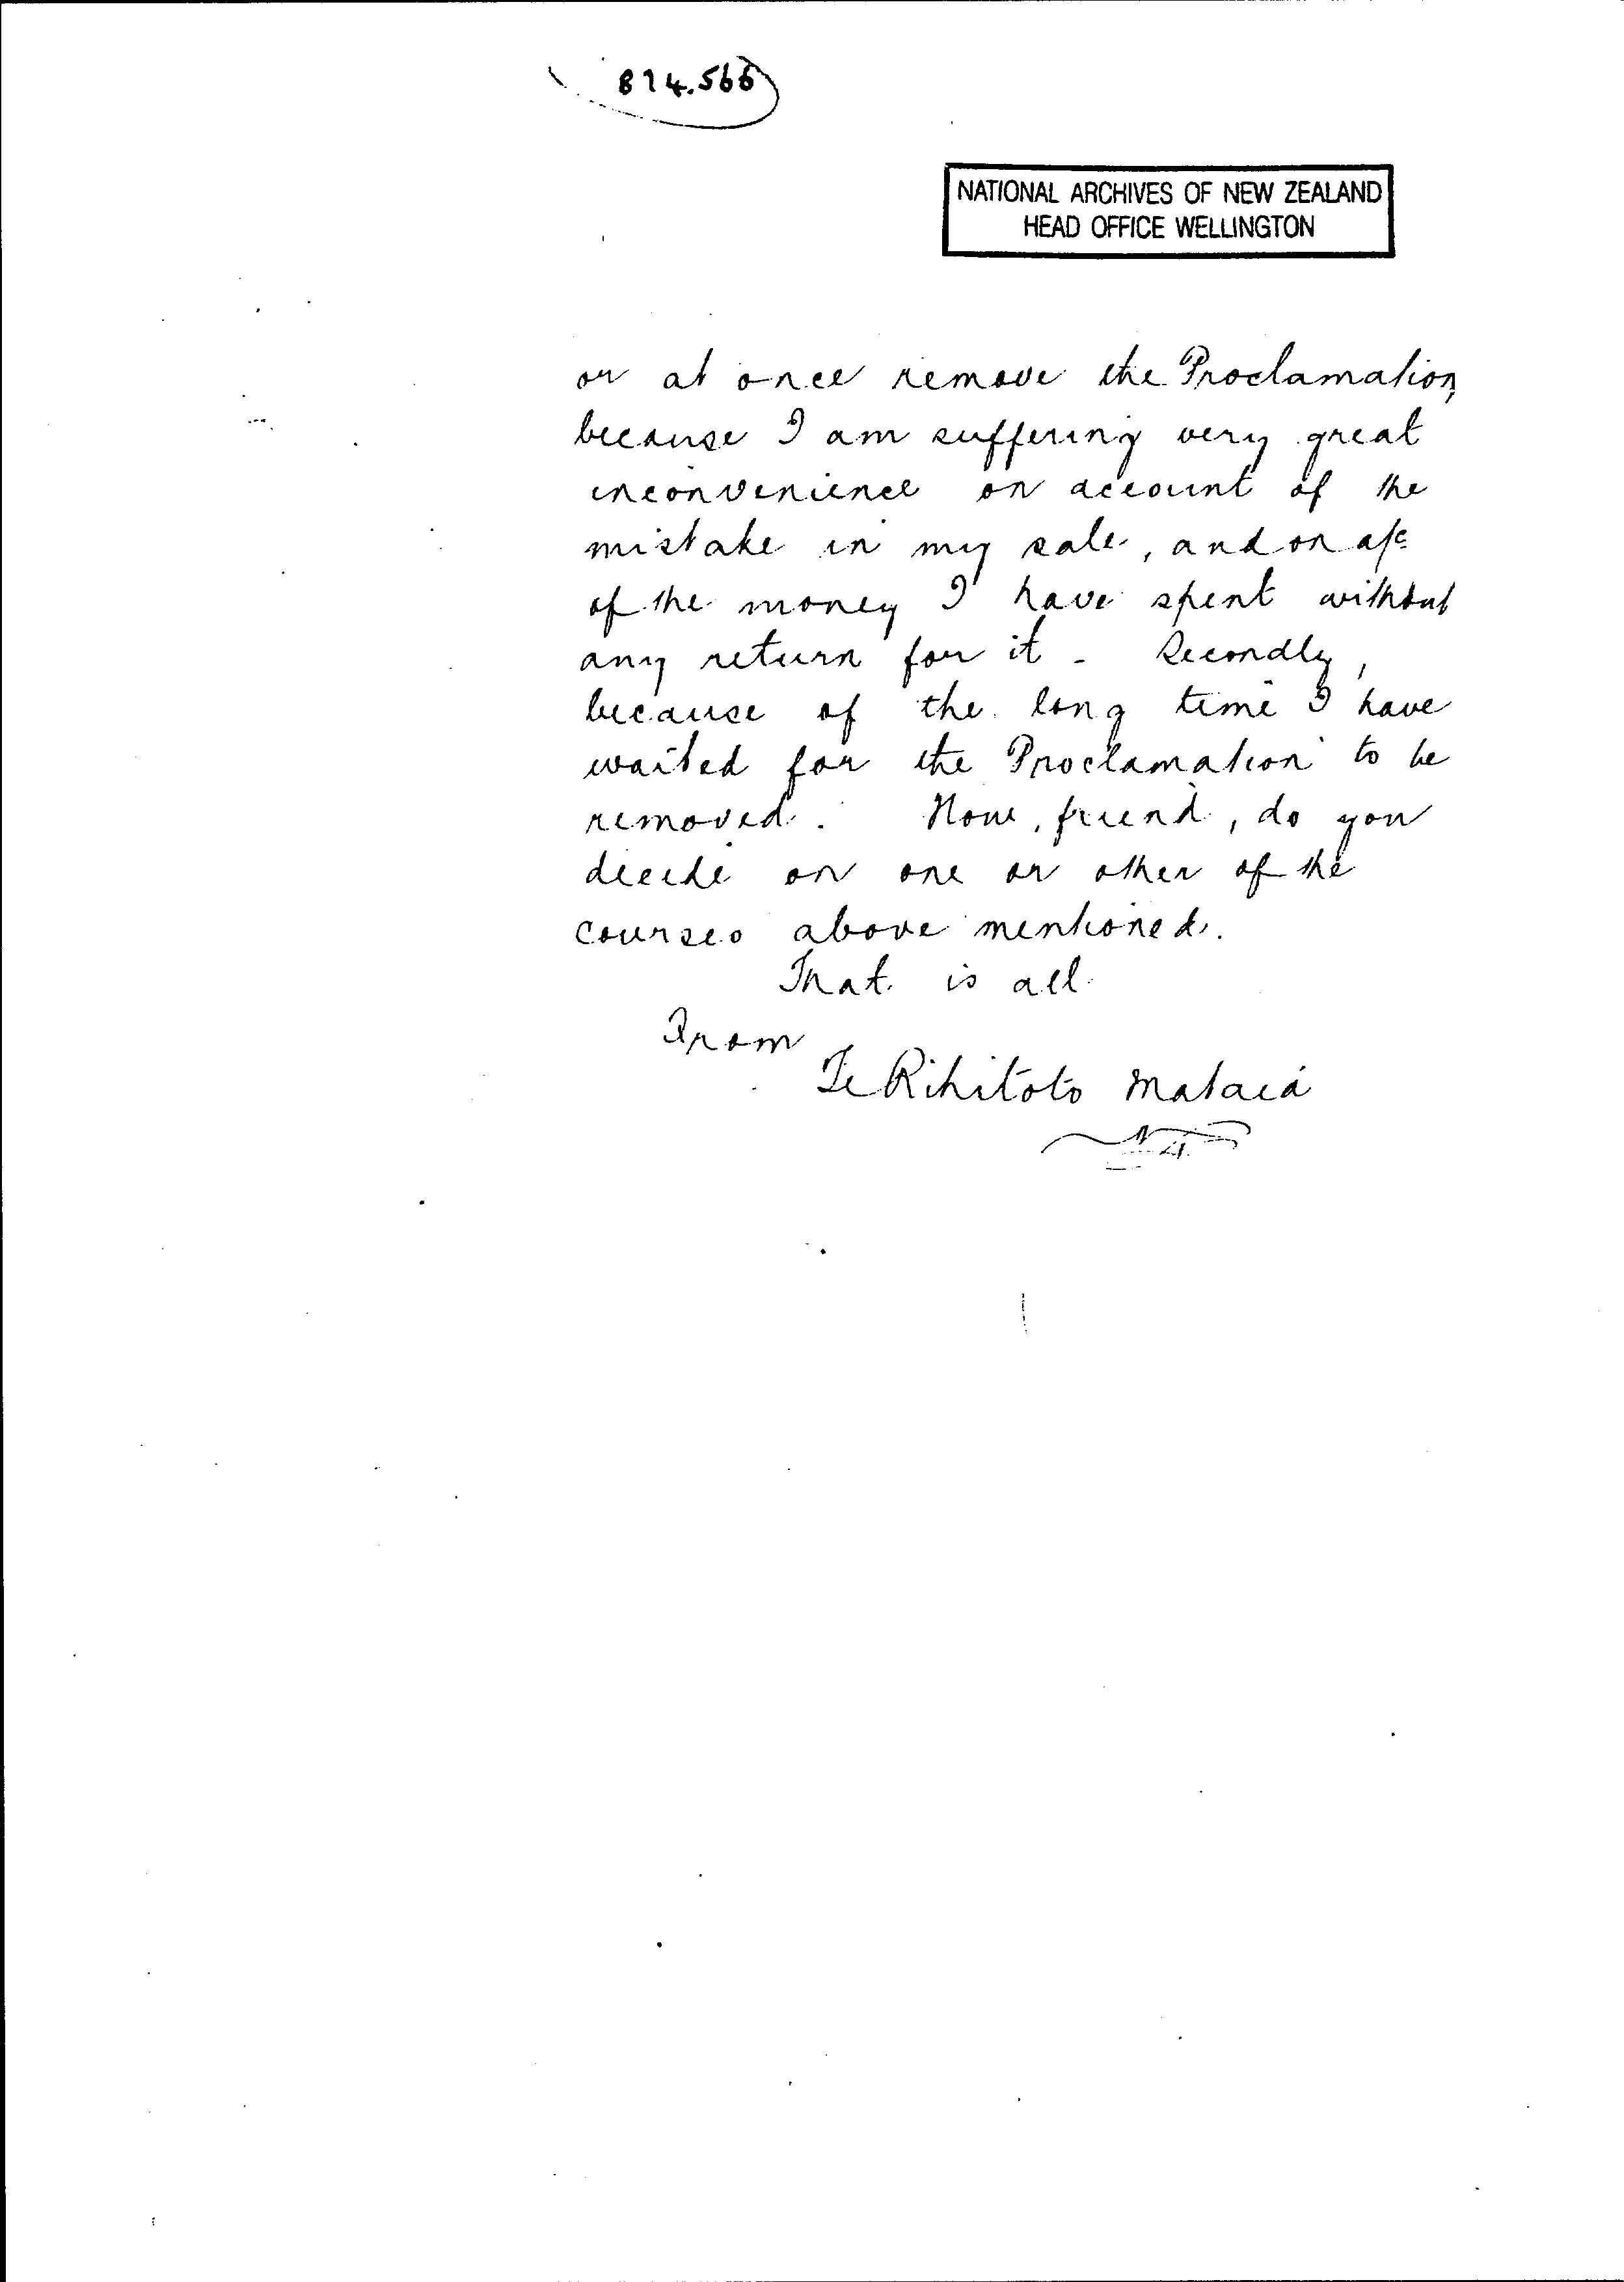 874.566
NATIONAL ARCHIVES OF NEW ZEALAND
HEAD OFFICE WELLINGTON
or at once remove the Proclamation,
because I am suffering very great
inconvenience on account of the
mistake in my sale, and on a/c
of the money I have spent without
any return for it - Secondly,
because of the long time I have
waited for the Proclamation to be
removed. Now, friend, do you
decide on one or other of the
courses above mentioned.
That is all
From
Te Rihitoto Mataia